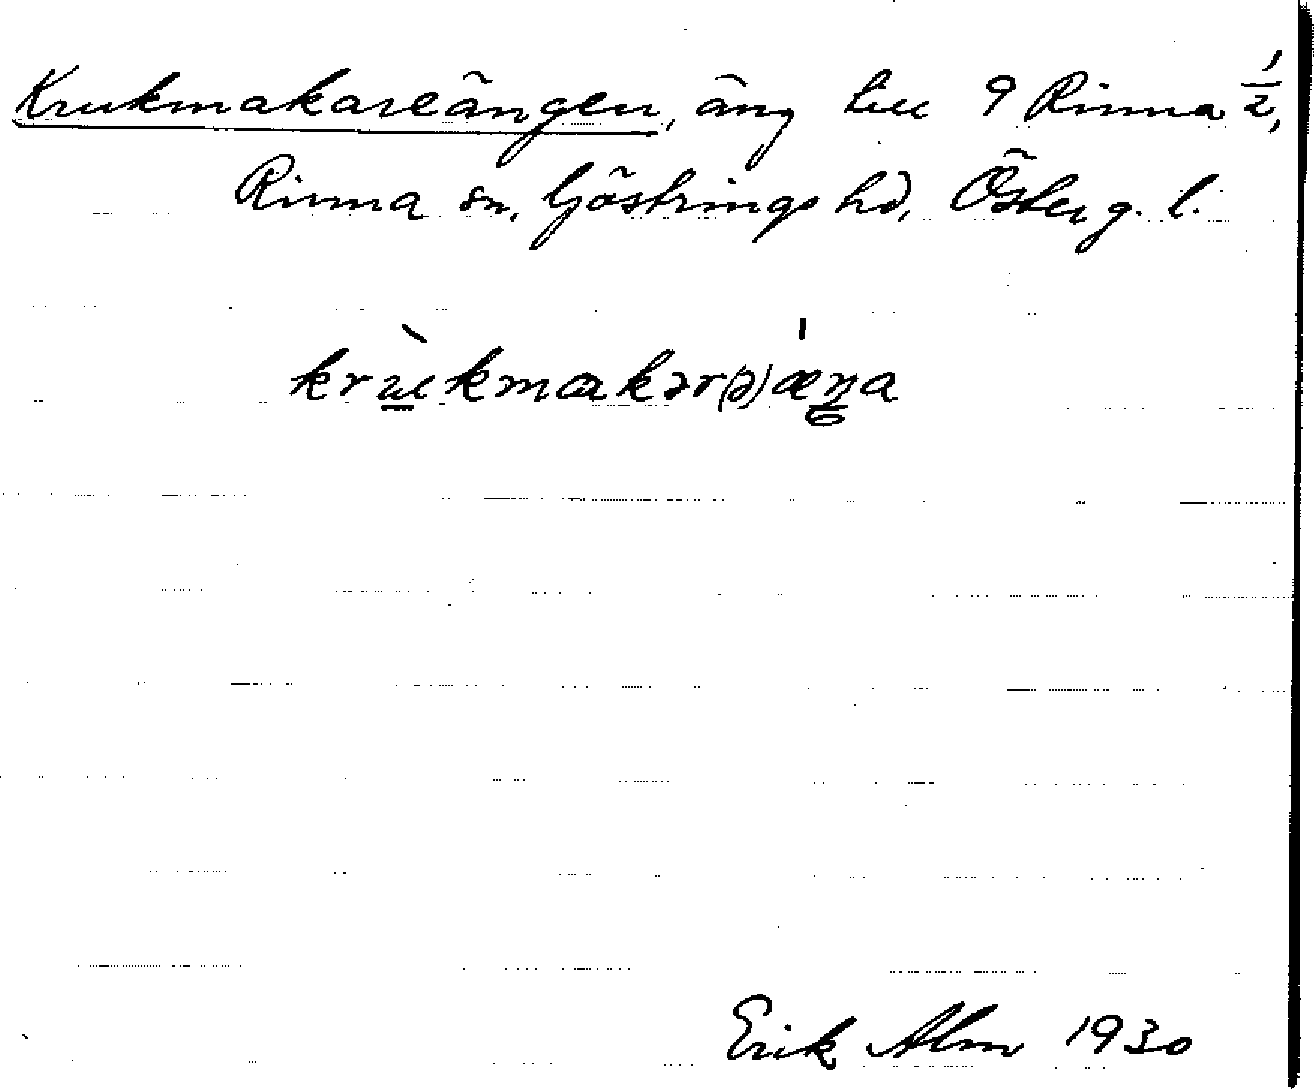 Krukmakareängen, äng till 9 Rinna 1/2,
Rinna sn, Göstrings hd, Österg. l.
krùkmakər(ə)æŋa
Erik Alm 1930